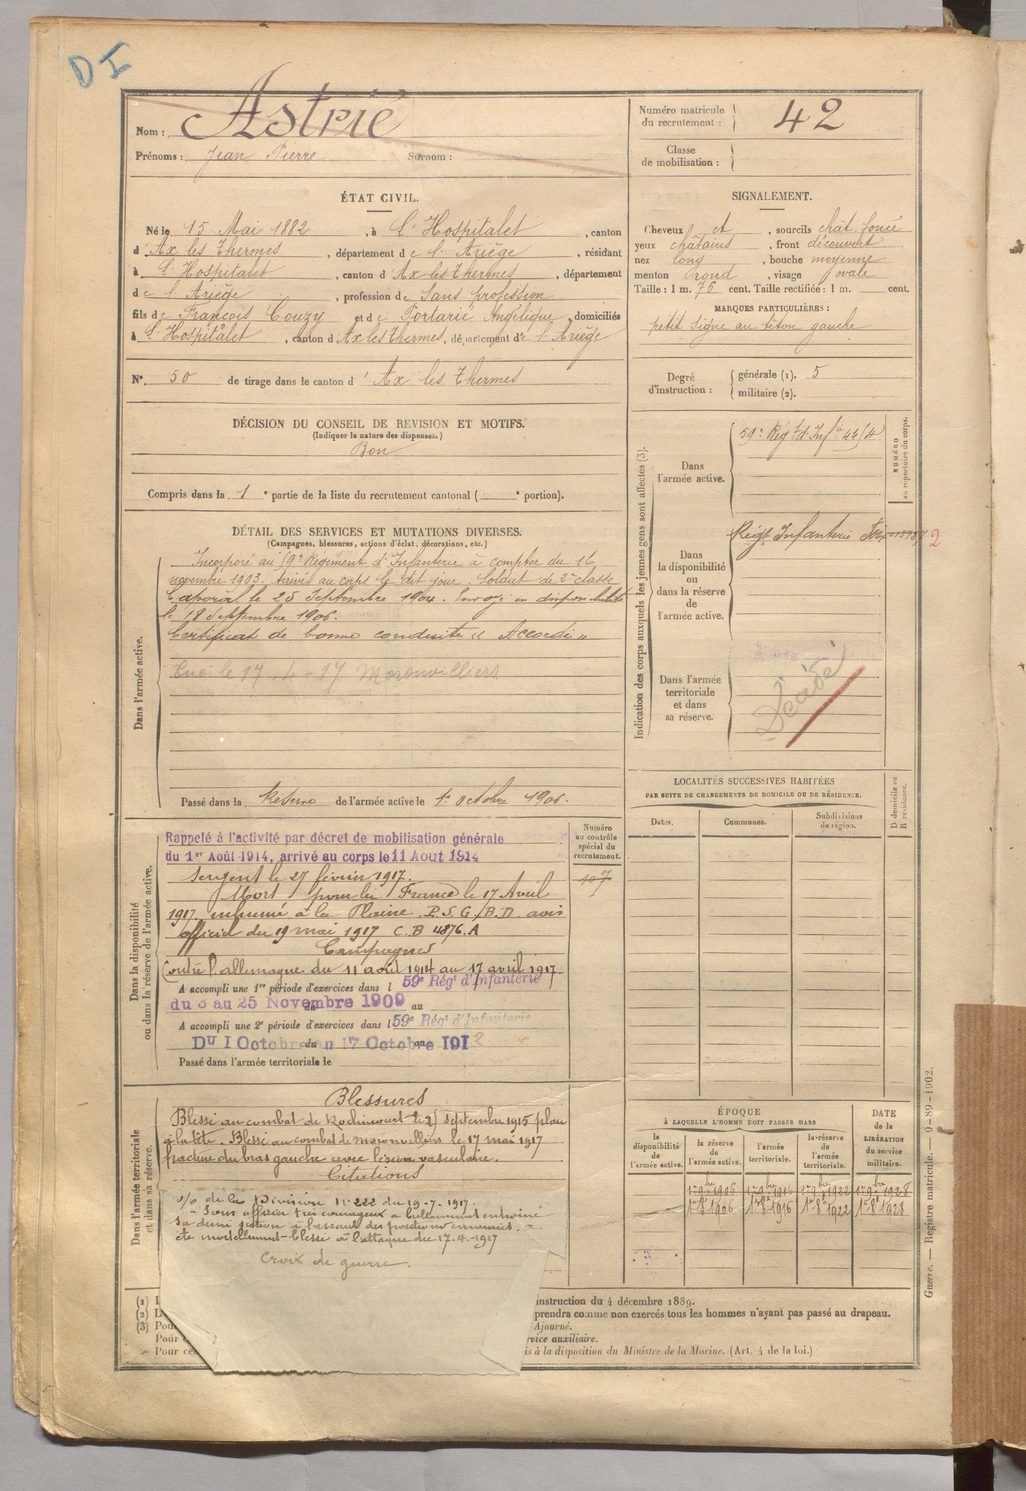 DI
Nom : Astrié
Prénoms : Jean Pierre Surnom :
Numéro matricule du recrutement : 42
Classe de mobilisation :
ÉTAT CIVIL.
Né le 15 Mai 1882, à L'Hospitalet, canton
d'Ax les Thermes, département de l'Ariège, résidant
à L'Hospitalet, canton d'Ax les Thermes, département
de l'Ariège, profession de Sans profession
fils de François Couzy et de Angélique, domiciliés
à L'Hospitalet, canton d'Ax les Thermes, département de l'Ariège
N°. 50 de tirage dans le canton d'Ax les Thermes
SIGNALEMENT.
Cheveux et, sourcils chât. foncé
yeux châtains, front découvert
nez long, bouche moyenne
menton rond, visage ovale
Taille : 1 m. 76 cent. Taille rectifiée : 1 m. cent.
MARQUES PARTICULIÈRES :
petit signe au téton gauche
Degré d'instruction : générale (1). 5
militaire (2).
DÉCISION DU CONSEIL DE REVISION ET MOTIFS.
(Indiquer la nature des dispenses.)
Bon
Compris dans la 1e partie de la liste du recrutement cantonal ( e portion).
DÉTAIL DES SERVICES ET MUTATIONS DIVERSES.
(Campagnes, blessures, actions d'éclat, décorations, etc.)
Dans l'armée active.
Incorporé au 59e Régiment d'Infanterie à compter du 16
novembre 1903. Arrivé au corps le dit jour. Soldat de 2e classe
Caporal le 25 Septembre 1904. Envoyé en disponibilité
le 18 Septembre 1906.
Certificat de bonne conduite « Accordé »
Tué le 17-4-17 Moronvilliers
Passé dans la Réserve de l'armée active le 1er octobre 1906.
Indication des corps auxquels les jeunes gens sont affectés (3).
NUMÉRO au répertoire du corps.
Dans l'armée active.
59e Régt d'Inf.
Dans la disponibilité ou dans la réserve de l'armée active.
Régt Infanterie
2
Dans l'armée territoriale et dans sa réserve.
Décédé
LOCALITÉS SUCCESSIVES HABITÉES
PAR SUITE DE CHANGEMENTS DE DOMICILE OU DE RÉSIDENCE.
Dates. Communes. Subdivisions de région. D domicile ou R résidence.
Dans la disponibilité ou dans la réserve de l'armée active.
Rappelé à l'activité par décret de mobilisation générale
du 1er Août 1914, arrivé au corps le 11 Aout 1914
Sergent le 27 février 1917.
Mort pour la France le 17 Avril
1917, inhumé à la Plaine. P.S.G./B.D. avis
officiel du 19 mai 1917 C.B 4876.A
Campagnes
Contre l'allemagne du 11 août 1914 au 17 avril 1917
A accompli une 1re période d'exercices dans l 59e Régt d'Infanterie
du 3 au 25 Novembre 1909 au
A accompli une 2e période d'exercices dans l 59e Régt d'Infanterie
DU 1 Octobre au 17 Octobre 1912
Passé dans l'armée territoriale le
Numéro au contrôle spécial du recrutement.
107
Dans l'armée territoriale et dans sa réserve.
Blessures
Blessé au combat de Rochincourt le 25 septembre 1915 plaie
à la tête. Blessé au combat de Moronvilliers le 17 mai 1917
fracture du bras gauche avec lésion vasculaire.
Citations
o/o de la Division N° 222 du 19-7-1917.
- Sous officier très courageux a brillamment entrainé
sa demi section à l'assaut des positions ennemies.
été mortellement blessé à l'attaque du 17.4.1917
Croix de guerre.
ÉPOQUE
À LAQUELLE L'HOMME DOIT PASSER DANS
la disponibilité de l'armée active. la réserve de l'armée active. l'armée territoriale. la réserve de l'armée territoriale.
DATE de la LIBÉRATION du service militaire.
1er 8bre 1906 1er 8bre 1916 1er 8bre 1922 1er 8bre 1928
(1)
(2)
(3) Pou
Pour
Pour ce
instruction du 4 décembre 1889.
prendra comme non exercés tous les hommes n'ayant pas passé au drapeau.
Ajourné.
rvice auxiliaire.
is à la disposition du Ministre de la Marine. (Art. 4 de la loi.)
Guerre. — Registre matricule. — 9-89-1902.